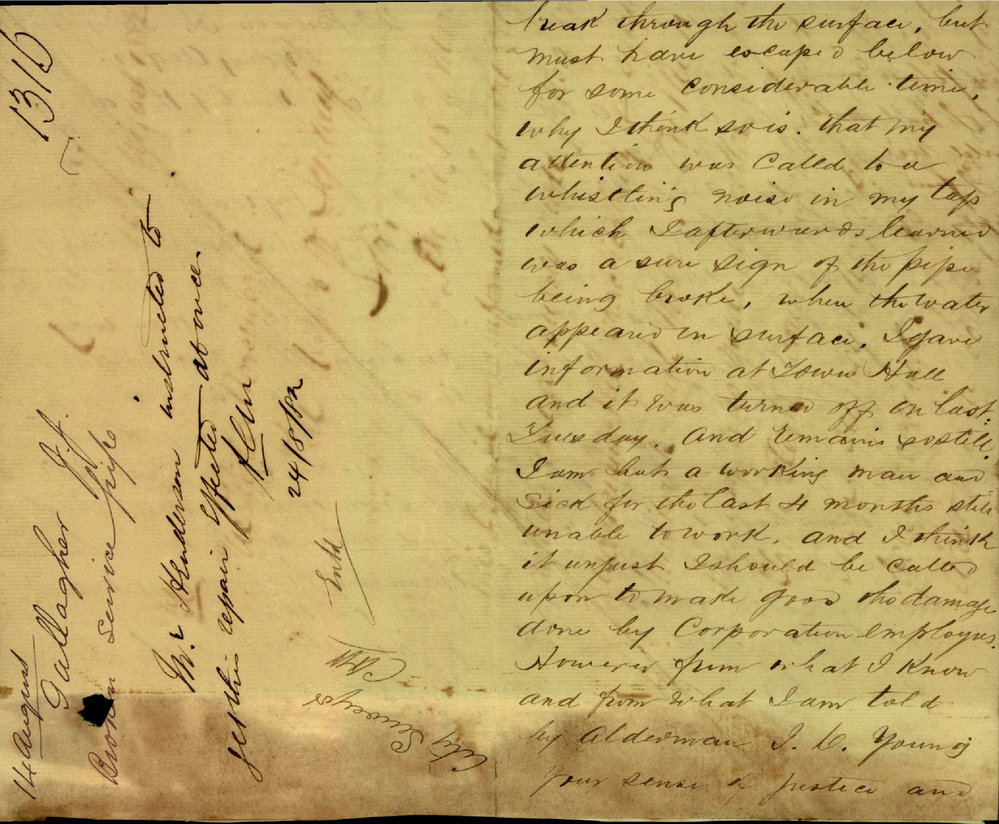 1316
14 August
Gallagher J. J.
Broken service pipe
Mr Henderson instructed to
get this repair effected at once.
24/8/82
Entd
City Surveyor
break through the surface, but
must have escaped below
for some considerable time,
why I think so is. that my
attention was Called to a
whistling noise in my tap
which I afterwards learned
was a sure sign of the pipe
being broke, when the water
appeared on surface. I gave
information at Town Hall
and it was turned off on last
Tuesday. And remains so still.
I am but a working man and
Sick for the last 4 months still
unable to work. and I think
it unjust I should be called
upon to make good the damage
done by Corporation employees.
However from what I know
and from what I am told
by Alderman J. D. Young
Your sense of Justice and